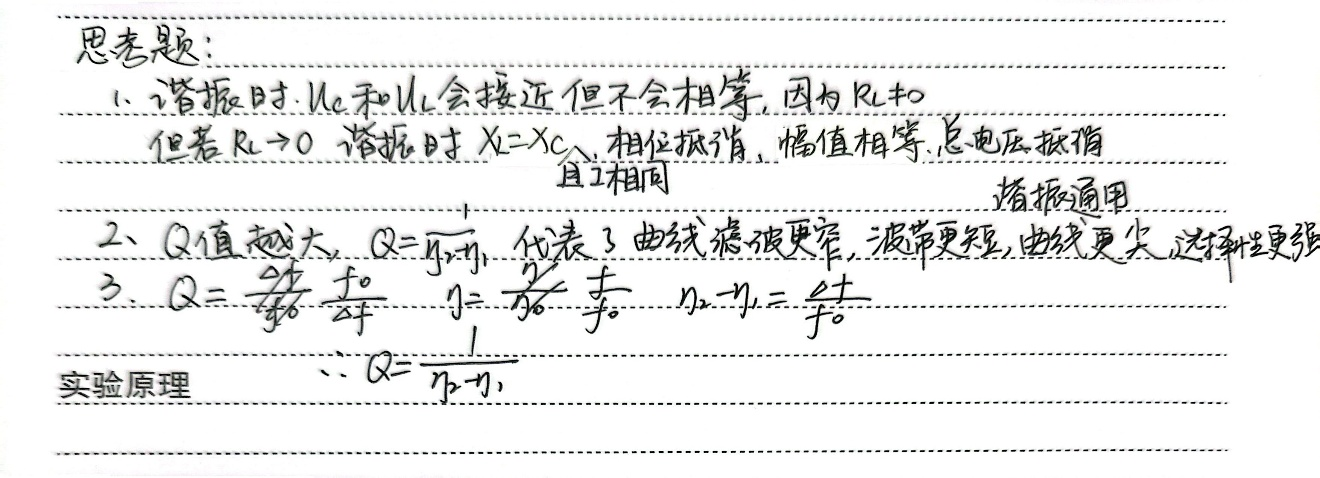 思考题：
1、谐振时.Uc和UL会接近但不会相等，因为RL≠0
但若RL→0 谐振时 XL=XC，相位抵消，幅值相等，总电压抵消
且I相同
谐振通用
2、Q值越大，Q=1/(η₂-η₁) 代表了曲线滤波更窄，波带更短，曲线更尖，选择性更强
3. Q= f₀/Δf η= f/f₀ η₂-η₁= Δf/f₀
∴ Q= 1/(η₂-η₁)
实验原理